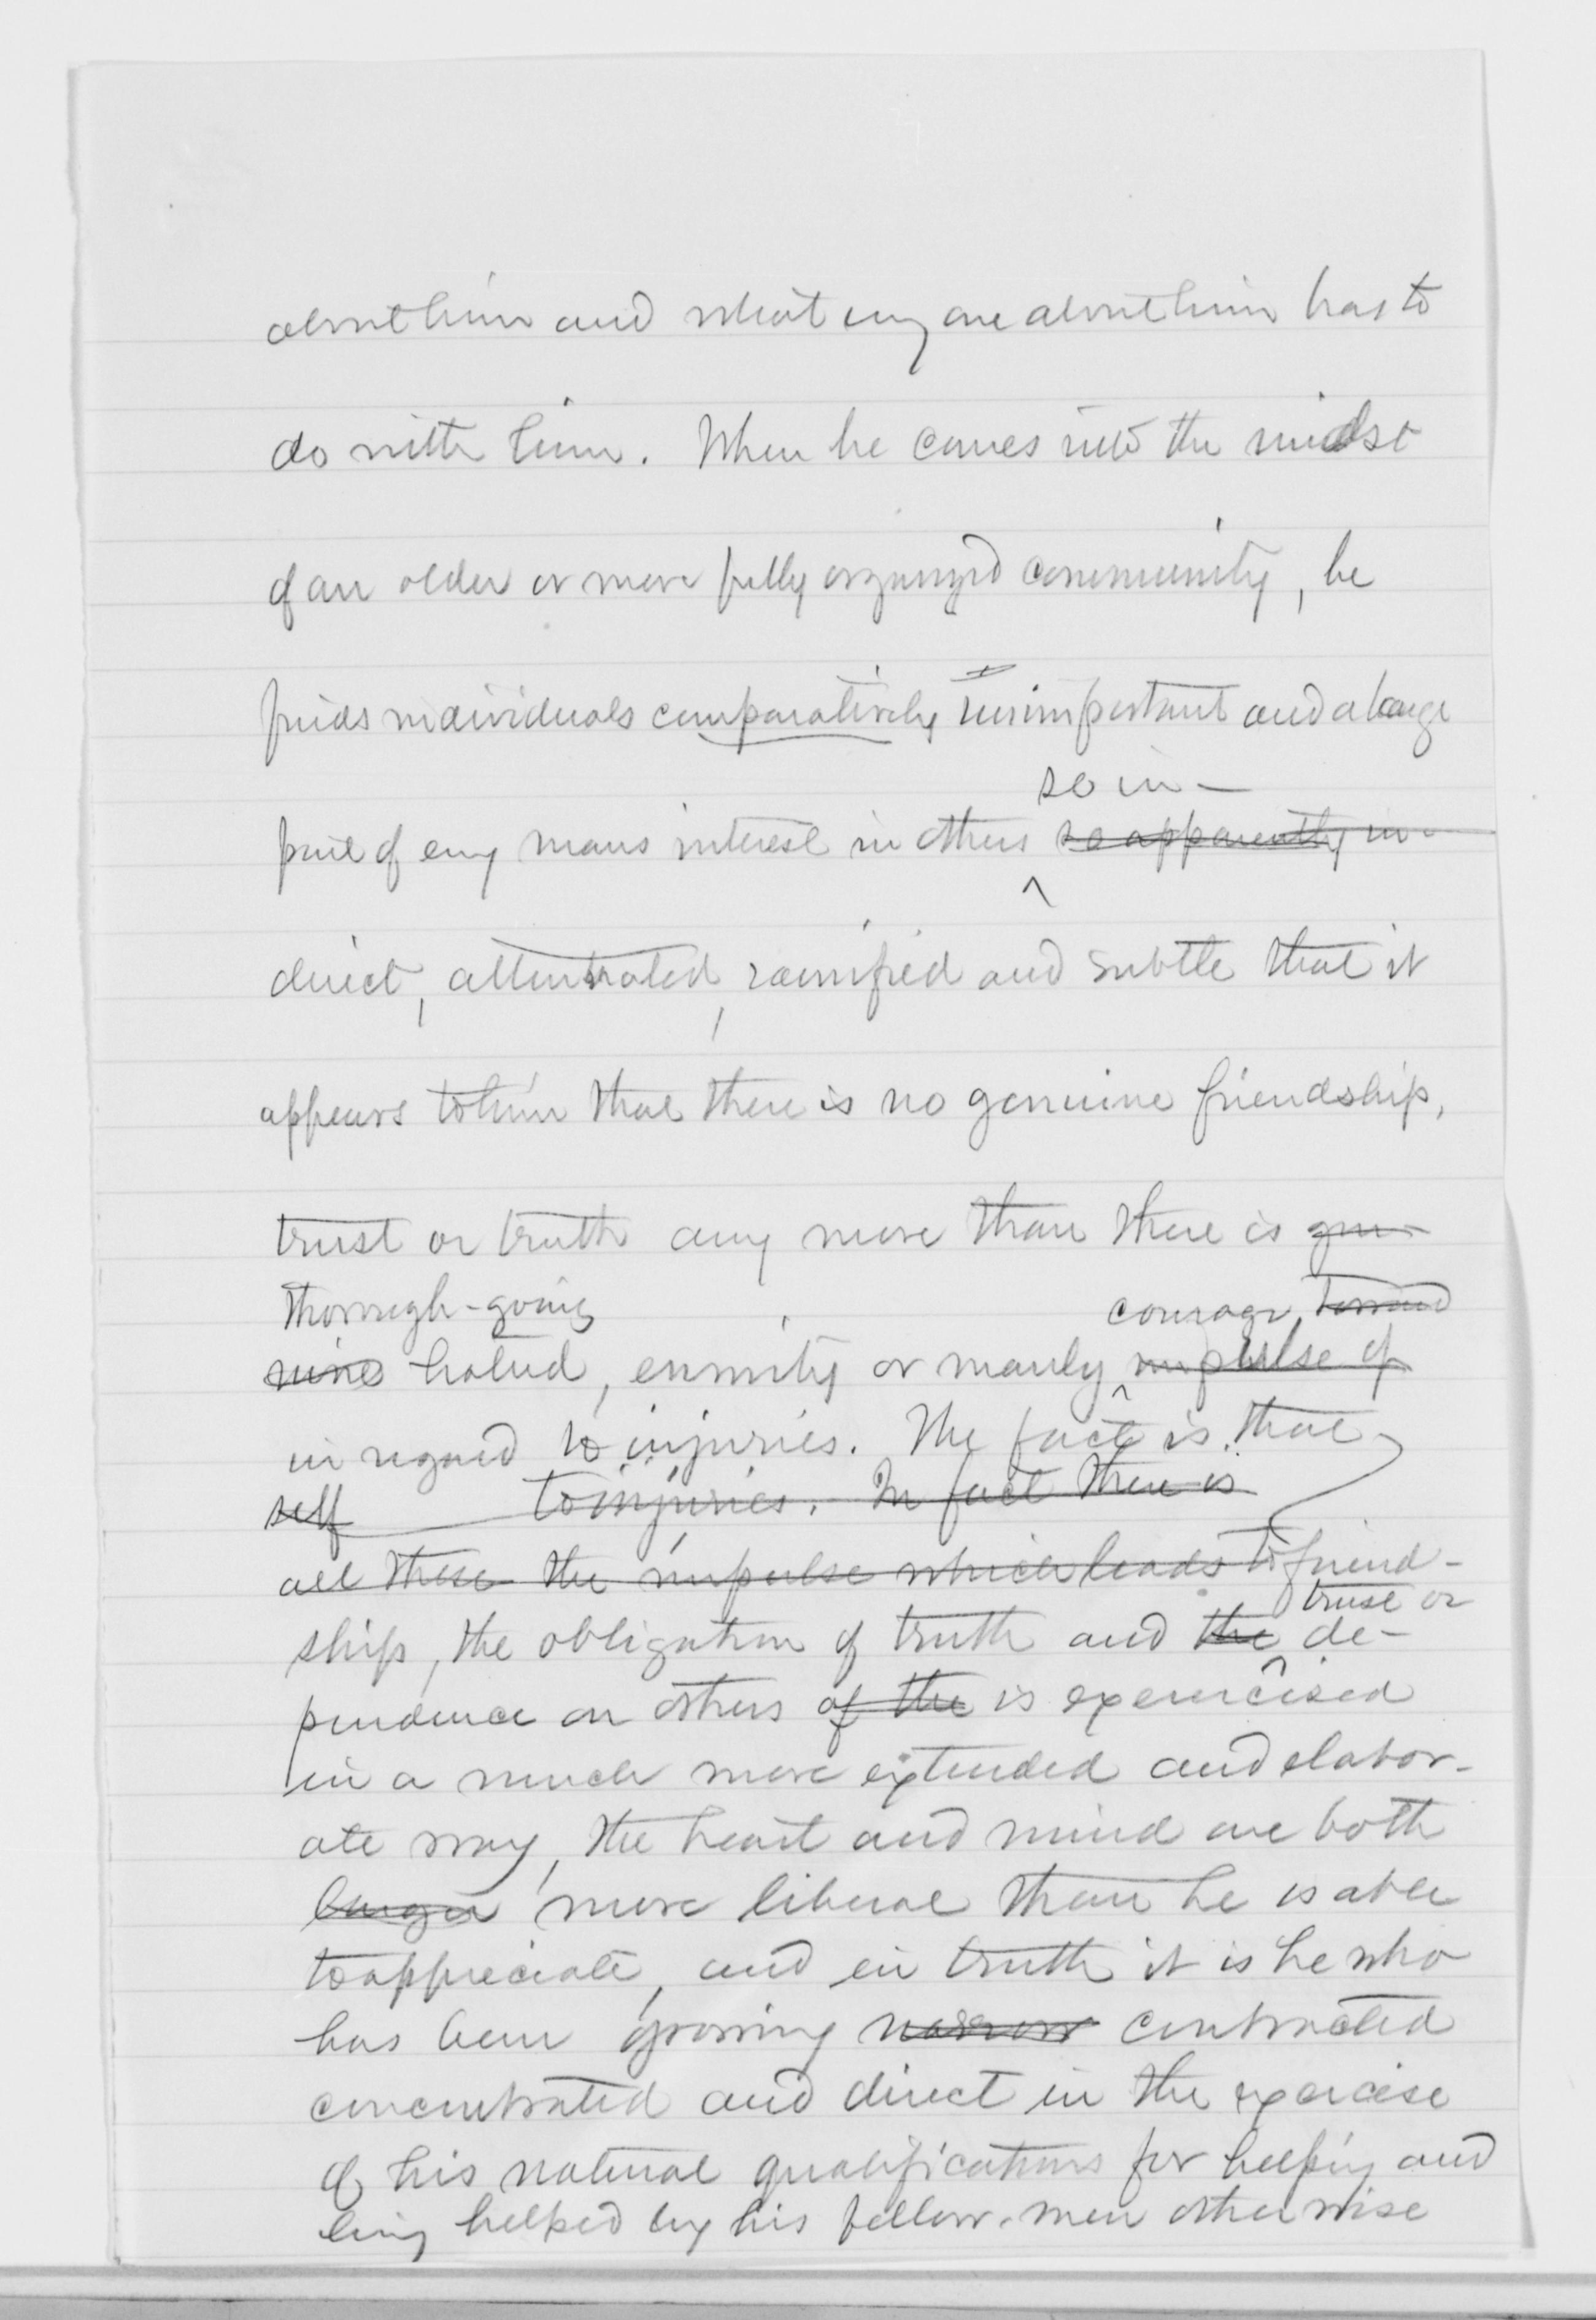 about him and what any one about him has to
do with him. When he comes into the midst
of an older or more fully organized community, he
finds individuals comparatively unimportant and a large
so in-
part of any mans interest in others so apparently in-
direct, attenuated, ramified and subtle that it
appears to him that there is no genuine friendship,
trust or truth any more than there is gen-
thorough-going courage, toward
uine hatred, enmity or manly impulse of
in regard to injuries. The fact is that
self to injuries. In fact there is
all these the impulse which leads to friend-
trust or
ship, the obligation of truth and the de-
pendence on others of the is exercised
in a much more extended and elabor-
ate way, the heart and mind are both
larger more liberal than he is able
to appreciate, and in truth it is he who
has been growing narrow contracted
concentrated and direct in the exercise
of his natural qualifications for helping and
being helped by his fellow-men otherwise